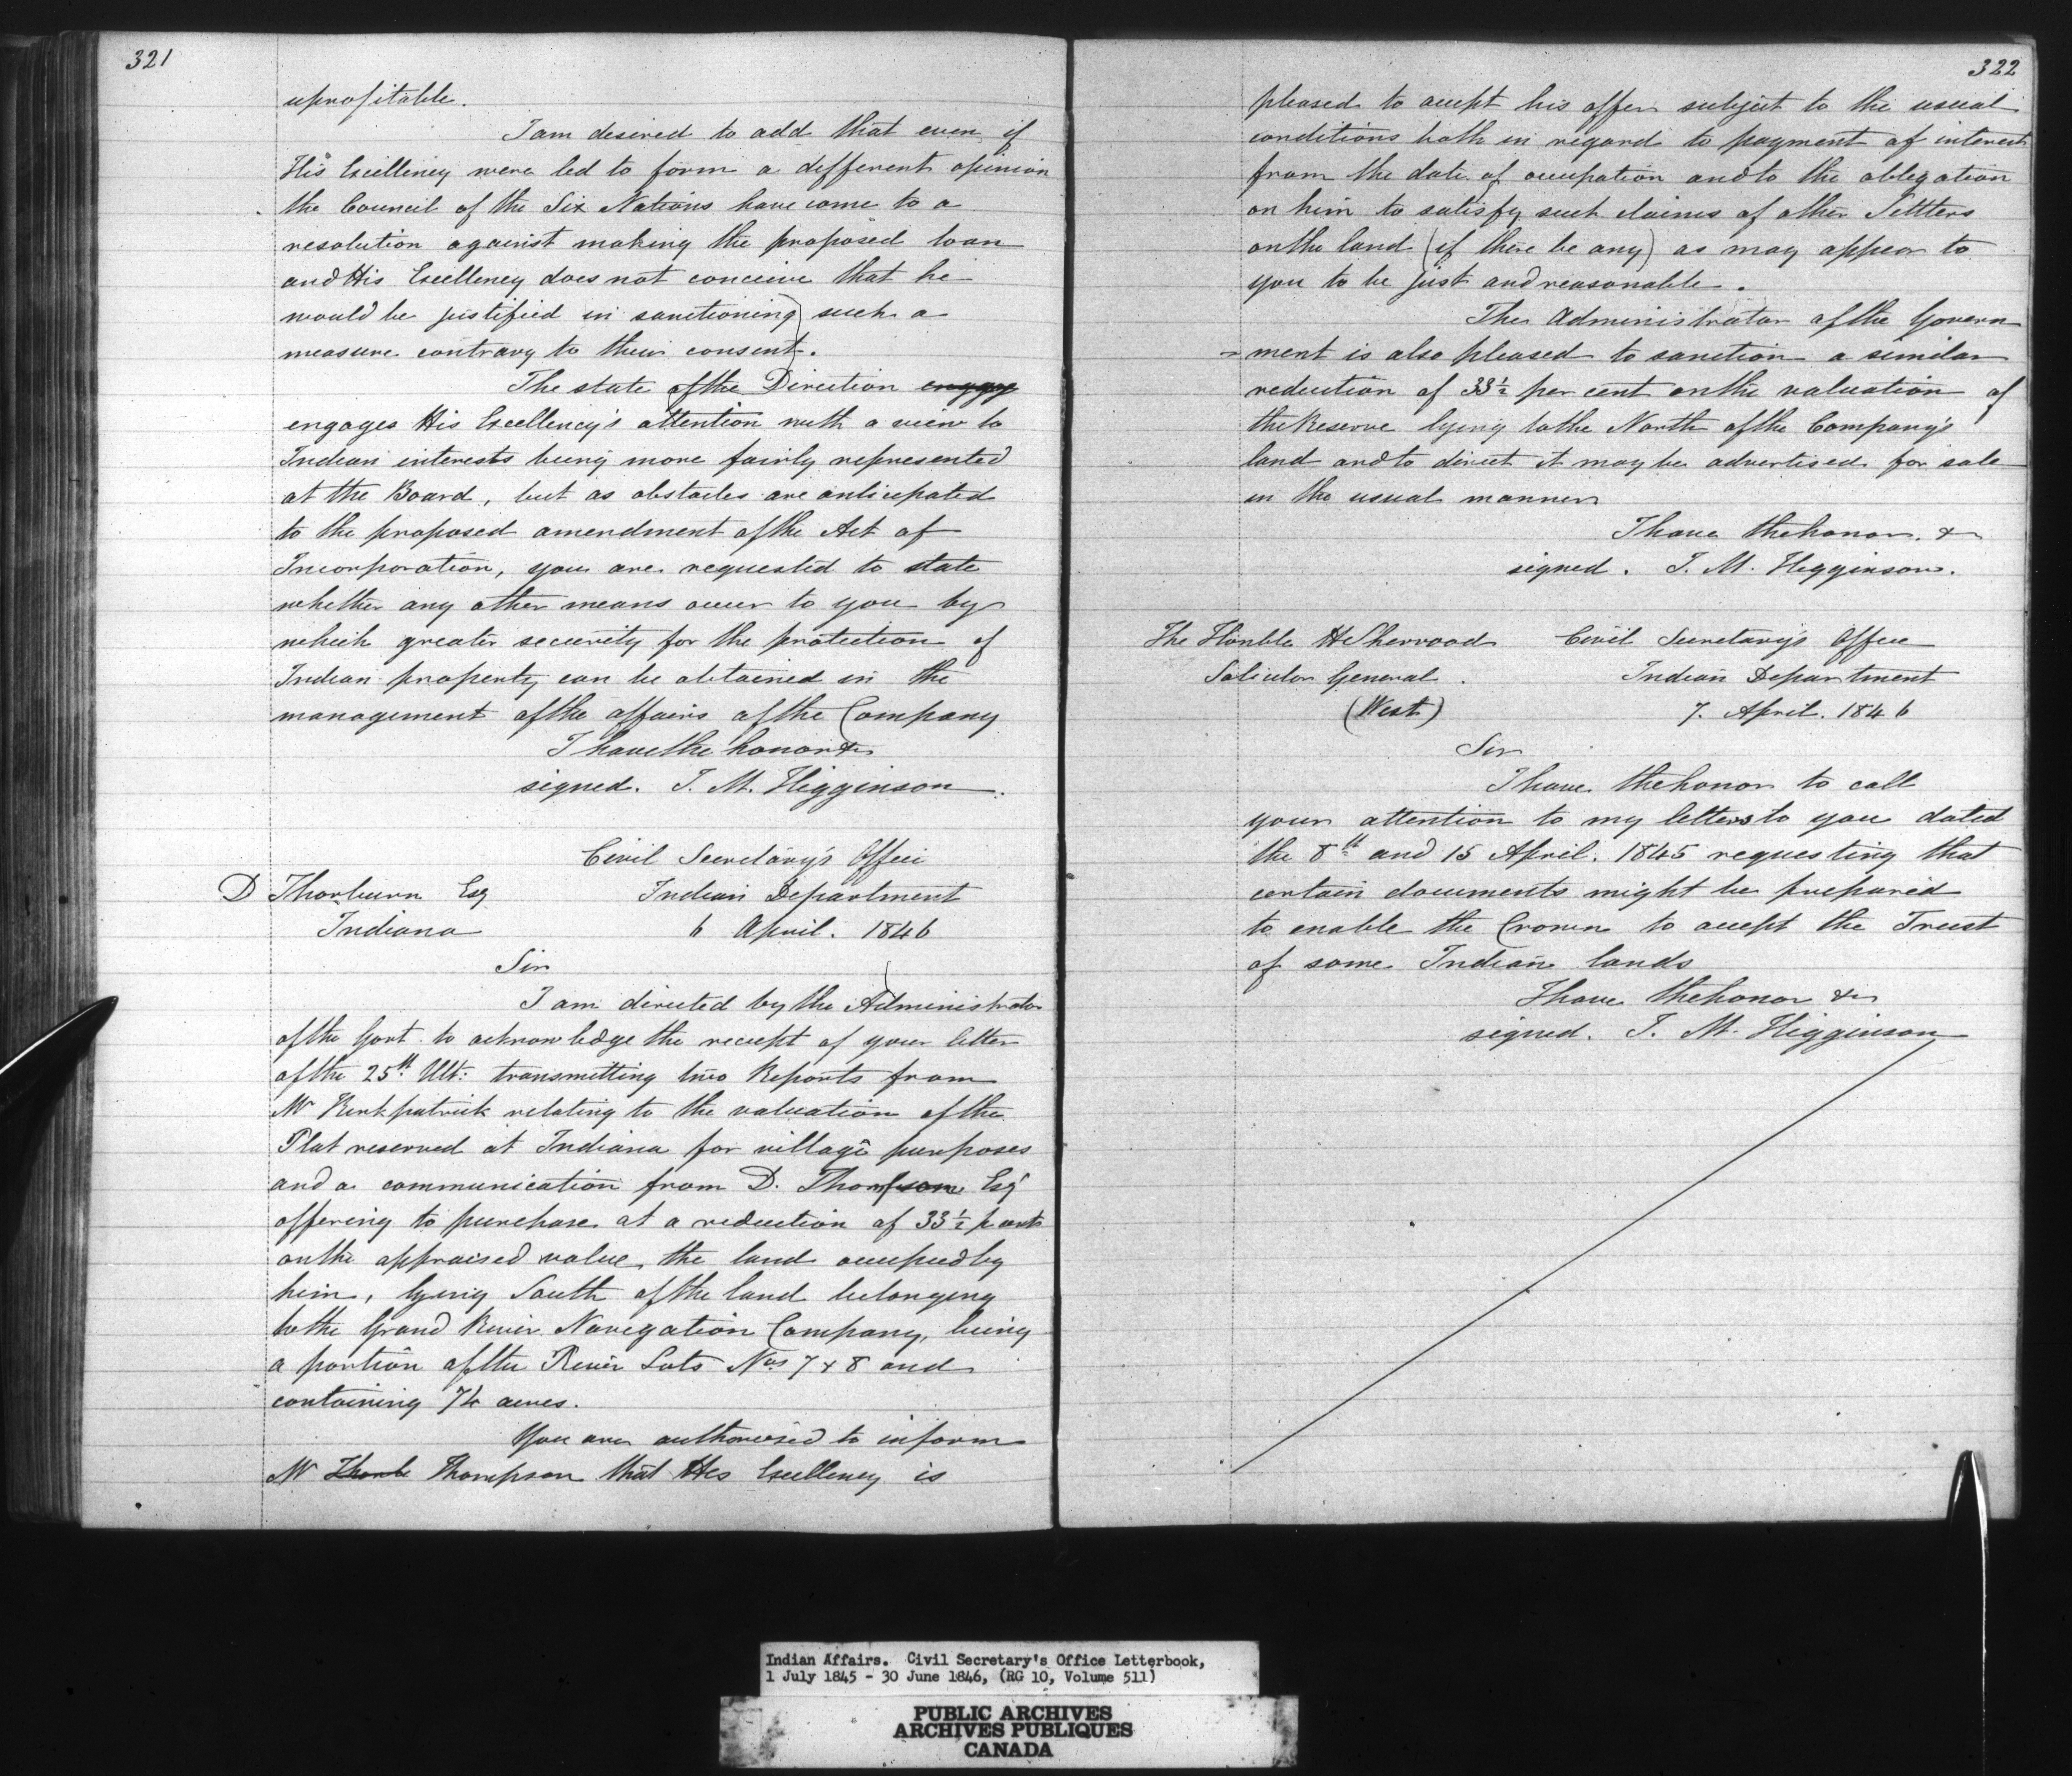 321
uprofitable.
I am desired to add that even if
His Excellency were led to form a different opinion
the Council of the Six Nations have come to a
resolution against making the proposed loan
and His Excellency does not conceive that he
would be justified in sanctioning such a
measure contrary to their consent.
The state of the Direction engage
engages His Excellency's attention with a view to
Indian interests being more fairly represented
at the Board, but as obstacles are anticipated
to the proposed amendment of the Act of
Incorporation, you are requested to state
whether any other means occur to you by
which greater security for the protection of
Indian property can be obtained in the
management of the affairs of the Company
I have the honor &c
signed. J. M. Higginson.
Civil Secretary's Office
D Thorburn Esq Indian Department
Indiana 6 April. 1846
Sir
I am directed by the Administrator
of the Govt. to acknowledge the receipt of your letter
of the 25th Ult: transmitting two Reports from
Mr Kirkpatrick relating to the valuation of the
Plat reserved at Indiana for village purposes
and a communication from D. Thompson Esq
offering to purchase at a reduction of 33½ p cent
on the appraised value, the land occupied by
him, lying South of the land belonging
to the Grand River Navigation Company, being
a portion of the River Lots Nos 7 & 8 and
containing 74 acres.
You are authorised to inform
Mr Thorb Thompson that His Excellency is
322
pleased to accept his offer subject to the usual
conditions both in regard to payment of interest
from the date of occupation and to the obligation
on him to satisfy such claims of other Settlers
on the land (if there be any) as may appear to
you to be just and reasonable.
The Administrator of the Govern
=ment is also pleased to sanction a similar
reduction of 33½ per cent on the valuation of
the Reserve lying to the North of the Company's
land and to direct it may be advertised for sale
in the usual manner
I have the honor. &
signed. J. M. Higginson.
The Honble H Sherwood Civil Secretary's Office
Solicitor General. Indian Department
(West) 7. April. 1846
Sir
I have the honor to call
your attention to my letters to you dated
the 8th and 15 April. 1845 requesting that
certain documents might be prepared
to enable the Crown to accept the Trust
of some Indian lands
I have the honor &c
signed. J. M. Higginson
Indian Affairs. Civil Secretary's Office Letterbook,
1 July 1845 - 30 June 1846, (RG 10, Volume 511)
PUBLIC ARCHIVES
ARCHIVES PUBLIQUES
CANADA